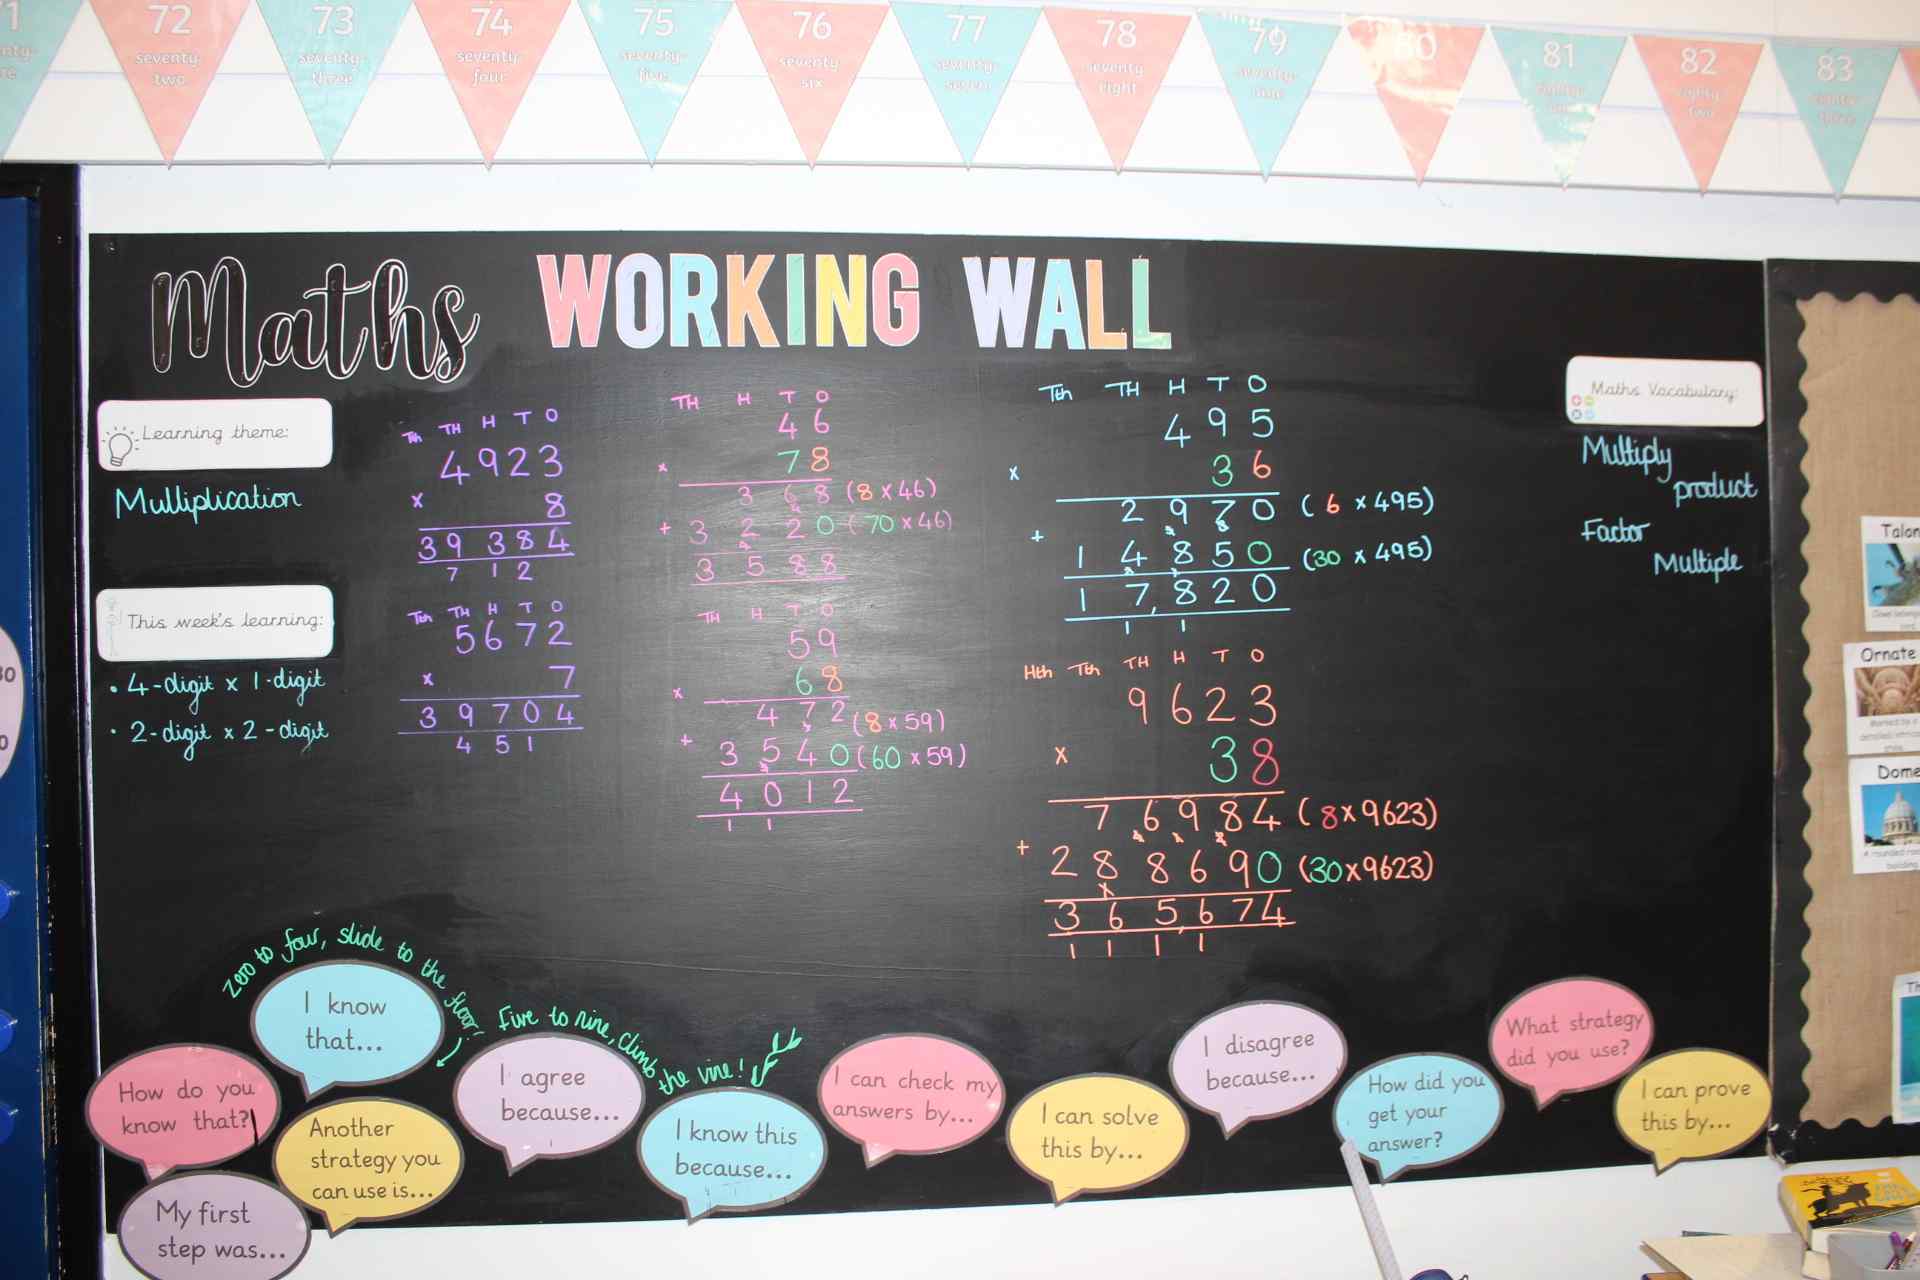 72
seventy
two
73
seventy-
three
74
seventy
four
75
seventy-
five
76
seventy
six
77
seventy-
seven
78
seventy
eight
79
seventy-
nine
80
81
eighty-
one
82
eighty-
two
83
eighty-
three
Maths WORKING WALL
Learning theme:
Multiplication
This week's learning:
• 4-digit x 1-digit
• 2-digit x 2-digit
Tth TH H T O
4923
x 8
39384
7 1 2
Tth TH H T O
5672
x 7
39704
4 5 1
TH H T O
46
x 78
368 (8 x 46)
4
+ 3220 (70 x 46)
4
3588
TH H T O
59
x 68
472 (8 x 59)
7
+ 3540 (60 x 59)
5
4012
1 1
Tth TH H T O
495
x 36
2970 (6 x 495)
+ 14850 (30 x 495)
17,820
1 1
Hth Tth TH H T O
9623
x 38
76984 (8x9623)
+ 288690 (30x9623)
365,674
1 1 1 1
Maths Vocabulary:
Multiply
product
Factor
Multiple
Ornate
Dome
zero to four, slide to the floor!
Five to nine, climb the vine!
I know
that...
How do you
know that?
Another
strategy you
can use is...
My first
step was...
I agree
because...
I know this
because...
I can check my
answers by...
I can solve
this by...
I disagree
because...
How did you
get your
answer?
What strategy
did you use?
I can prove
this by...